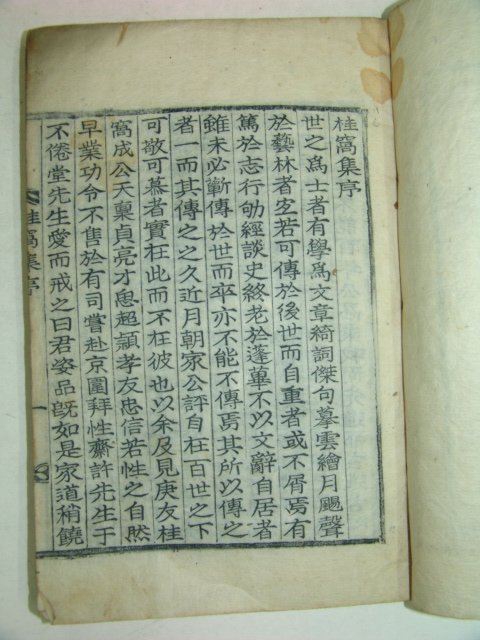 桂窩集序
世之爲士者有學爲文章綺詞傑句摹雲繪月颺聲
於藝林者宜若可傳於後世而自重者或不屑焉有
篤於志行劬經談史終老於蓬蓽不以文辭自居者
雖未必蘄傳於世而卒亦不能不傳焉其所以傳之
者一而其傳之之久近月朝家公評自在百世之下
可敬可慕者實在此而不在彼也以余及見庚友桂
窩成公天稟貞亮才思超穎孝友忠信若性之自然
早業功令不售於有司嘗赴京圍拜性齋許先生于
不倦堂先生愛而戒之曰君姿品旣如是家道稍饒
桂窩集序 一